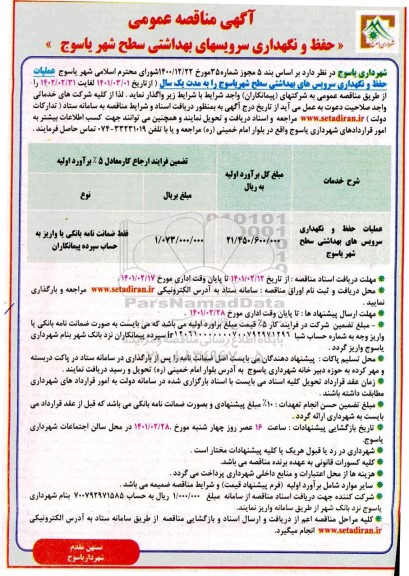 آگهی مناقصه عمومی
« حفظ و نگهداری سرویسهای بهداشتی سطح شهر یاسوج »
شهرداری یاسوج در نظر دارد بر اساس بند ۵ مجوز شماره۳۵مورخ ۱۴۰۰/۱۲/۲۲شورای محترم اسلامی شهر یاسوج عملیات
حفظ و نگهداری سرویس های بهداشتی سطح شهریاسوج را به مدت یک سال ( از تاریخ ۱۴۰۱/۰۳/۰۱ لغایت ۱۴۰۲/۰۲/۳۱ ) را
از طریق مناقصه عمومی به شرکتهای (پیمانکاران) واجد شرایط با شرایط زیر واگذار نماید . لذا از کلیه شرکت های خدماتی
واجد صلاحیت دعوت به عمل می آید از تاریخ درج آگهی به بمنظور دریافت اسناد و شرایط مناقصه به سامانه ستاد ( تدارکات
دولت ) www.setadiran.ir مراجعه و اسناد دریافت و تحویل نمایند و همچنین می توانند جهت کسب اطلاعات بیشتر به
امور قراردادهای شهرداری یاسوج واقع در بلوار امام خمینی (ره) مراجعه و یا با تلفن ۳۳۲۳۱۰۱۹-۰۷۴ تماس حاصل فرمایند .
شرح خدمات
مبلغ کل برآورد اولیه به ریال
تضمین فرایند ارجاع کارمعادل ۵ ٪ برآورد اولیه
مبلغ بریال
نوع
عملیات حفظ و نگهداری سرویس های بهداشتی سطح شهر یاسوج
۲۱/۴۵۰/۶۰۰/۰۰۰
۱/۰۷۳/۰۰۰/۰۰۰
فقط ضمانت نامه بانکی یا واریز به حساب سپرده پیمانکاران
مهلت دریافت اسناد مناقصه : از تاریخ ۱۴۰۱/۰۲/۱۲ تا پایان وقت اداری مورخ ۱۴۰۱/۰۲/۱۷.
محل دریافت و ثبت نام اوراق مناقصه : سامانه ستاد به آدرس الکترونیکی www.setadiran.ir مراجعه و بارگذاری
نمایید .
مهلت ارسال پیشنهاد ها : تا پایان وقت اداری مورخ ۱۴۰۱/۰۲/۲۸ .
- مبلغ تضمین شرکت در فرایند کار ۵٪ قیمت مبلغ براورد اولیه می باشد که می بایست به صورت ضمانت نامه بانکی یا
واریز وجه به شماره حساب شبا سپرده پیمانکاران نزد بانک شهر بنام شهرداری
یاسوج واریز گردد .
محل تسلیم پاکات : پیشنهاد دهندگان می بایست اصل ضمانت نامه را پس از بارگذاری در سامانه ستاد در پاکت دربسته
و مهر کرده به حوزه دبیر خانه شهرداری یاسوج به آدرس بلوار امام خمینی (ره) تحویل و رسید دریافت نمایند .
زمان عقد قرارداد تحویل کلیه اسناد می بایست با اسناد بارگزاری شده در سامانه دولت به امور قرارداد های شهرداری
مطابقت داشته باشند .
مبلغ تضمین حسن انجام تعهدات : ۱۰٪ مبلغ پیشنهادی و بصورت ضمانت نامه بانکی می باشد که قبل از عقد قرارداد می
بایست به شهرداری ارائه گردد .
تاریخ بازگشایی پیشنهادات : ساعت ۱۶ عصر روز چهار شنبه مورخ ۱۴۰۱/۰۲/۲۸. در محل سالن اجتماعات شهرداری
یاسوج.
شهرداری در رد یا قبول هریک یا کلیه پیشنهادات مختار است .
کلیه کسورات قانونی به عهده برنده مناقصه می باشد.
هزینه ها از محل اعتبارات و منابع داخلی شهرداری پرداخت می گردد .
سایر موارد شامل برآورد اولیه (فرم پیشنهاد قیمت) و شرایط مناقصه ضمیمه می باشد.
شرکت کننده جهت دریافت اسناد مناقصه از سامانه مبلغ ۱/۰۰۰/۰۰۰ ریال به حساب ۷۰۰۷۹۲۹۷۱۵۸۵ بنام شهرداری
یاسوج نزد بانک شهر از طریق سامانه واریز نمایند.
کلیه مراحل مناقصه اعم از دریافت و ارسال اسناد و بازگشایی مناقصه از طریق سامانه ستاد به آدرس الکترونیکی
www.setadiran.ir انجام میگیرد.
شهردار یاسوج